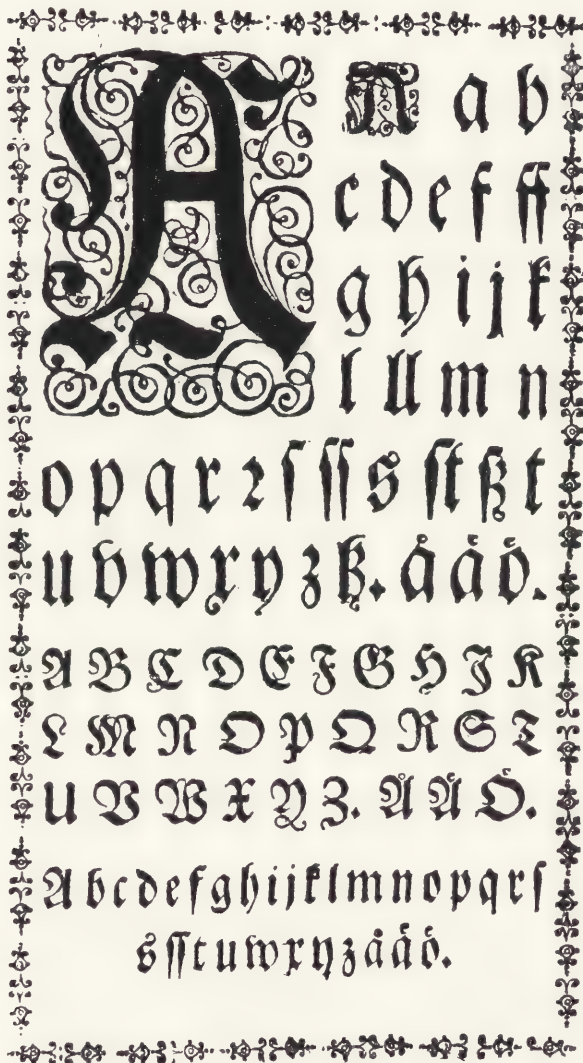 A A a b
c d e f ff
g h i j k
l ll m n
o p q r ꝛ ſ ſſ s ſt ß t
u v w x y z tz. å ä ö.
A B C D E F G H I K
L M N O P Q R S T
U V W X Y Z. Å Ä Ö.
A b c d e f g h i j k l m n o p q r ſ
s ſſ t u w x y z å ä ö.